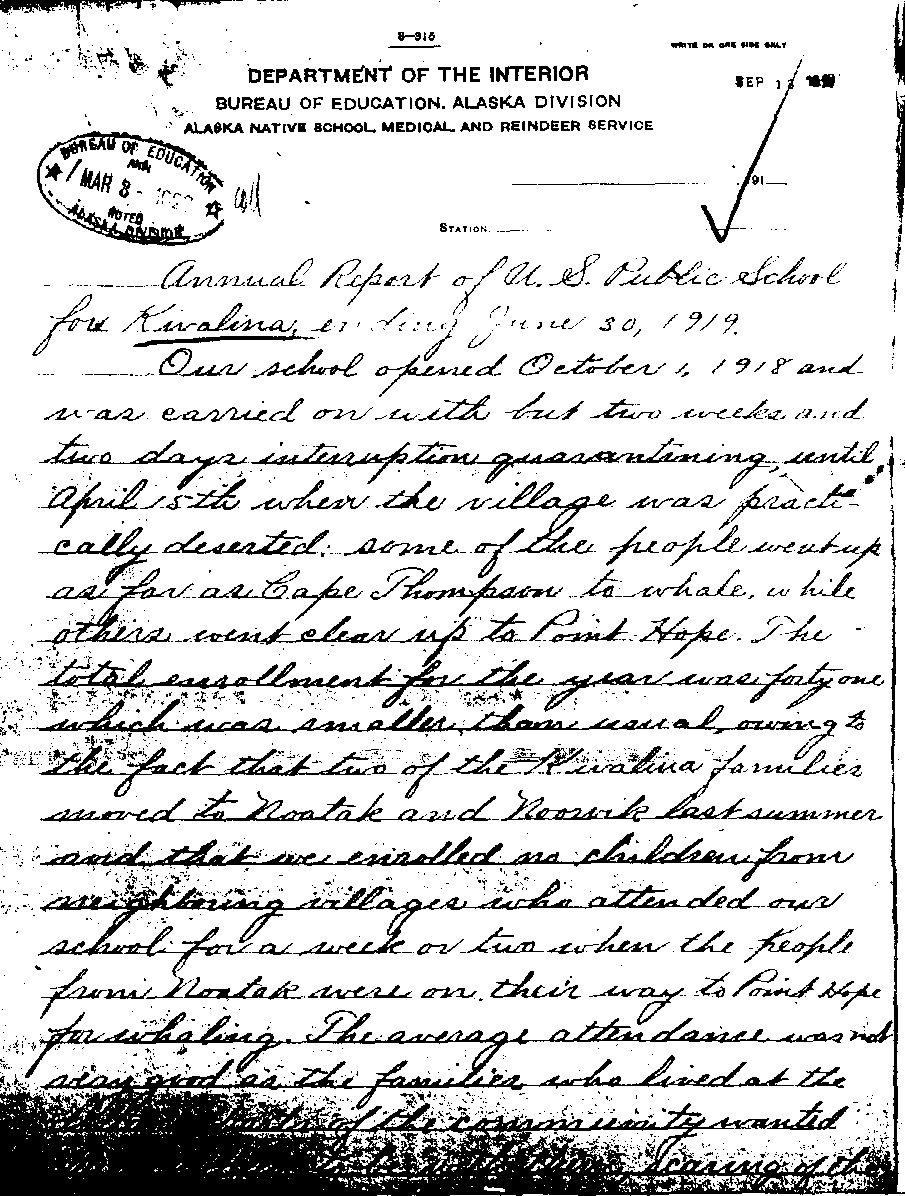 8-315
WRITE ON ONE SIDE ONLY
DEPARTMENT OF THE INTERIOR
SEP 1
BUREAU OF EDUCATION, ALASKA DIVISION
ALASKA NATIVE SCHOOL, MEDICAL, AND REINDEER SERVICE
BUREAU OF EDUCATION
MAR 3
NOTED
ALASKA DIVISION
191
STATION
Annual Report of U. S. Public School
for Kivalina, ending June 30, 1919.
Our school opened October 1, 1918 and
was carried on with but two weeks and
two days interruption quarantining, until
April 15th when the village was practi-
cally deserted; some of the people went up
as far as Cape Thompson to whale, while
others went clear up to Point Hope. The
total enrollment for the year was forty one
which was smaller than usual, owing to
the fact that two of the Kivalina families
moved to Noatak and Noorvik last summer
and that we enrolled no children from
neighboring villages who attended our
school for a week or two when the people
from Noatak were on their way to Point Hope
for whaling. The average attendance was not
very good as the families who lived at the
of the community wanted
of the